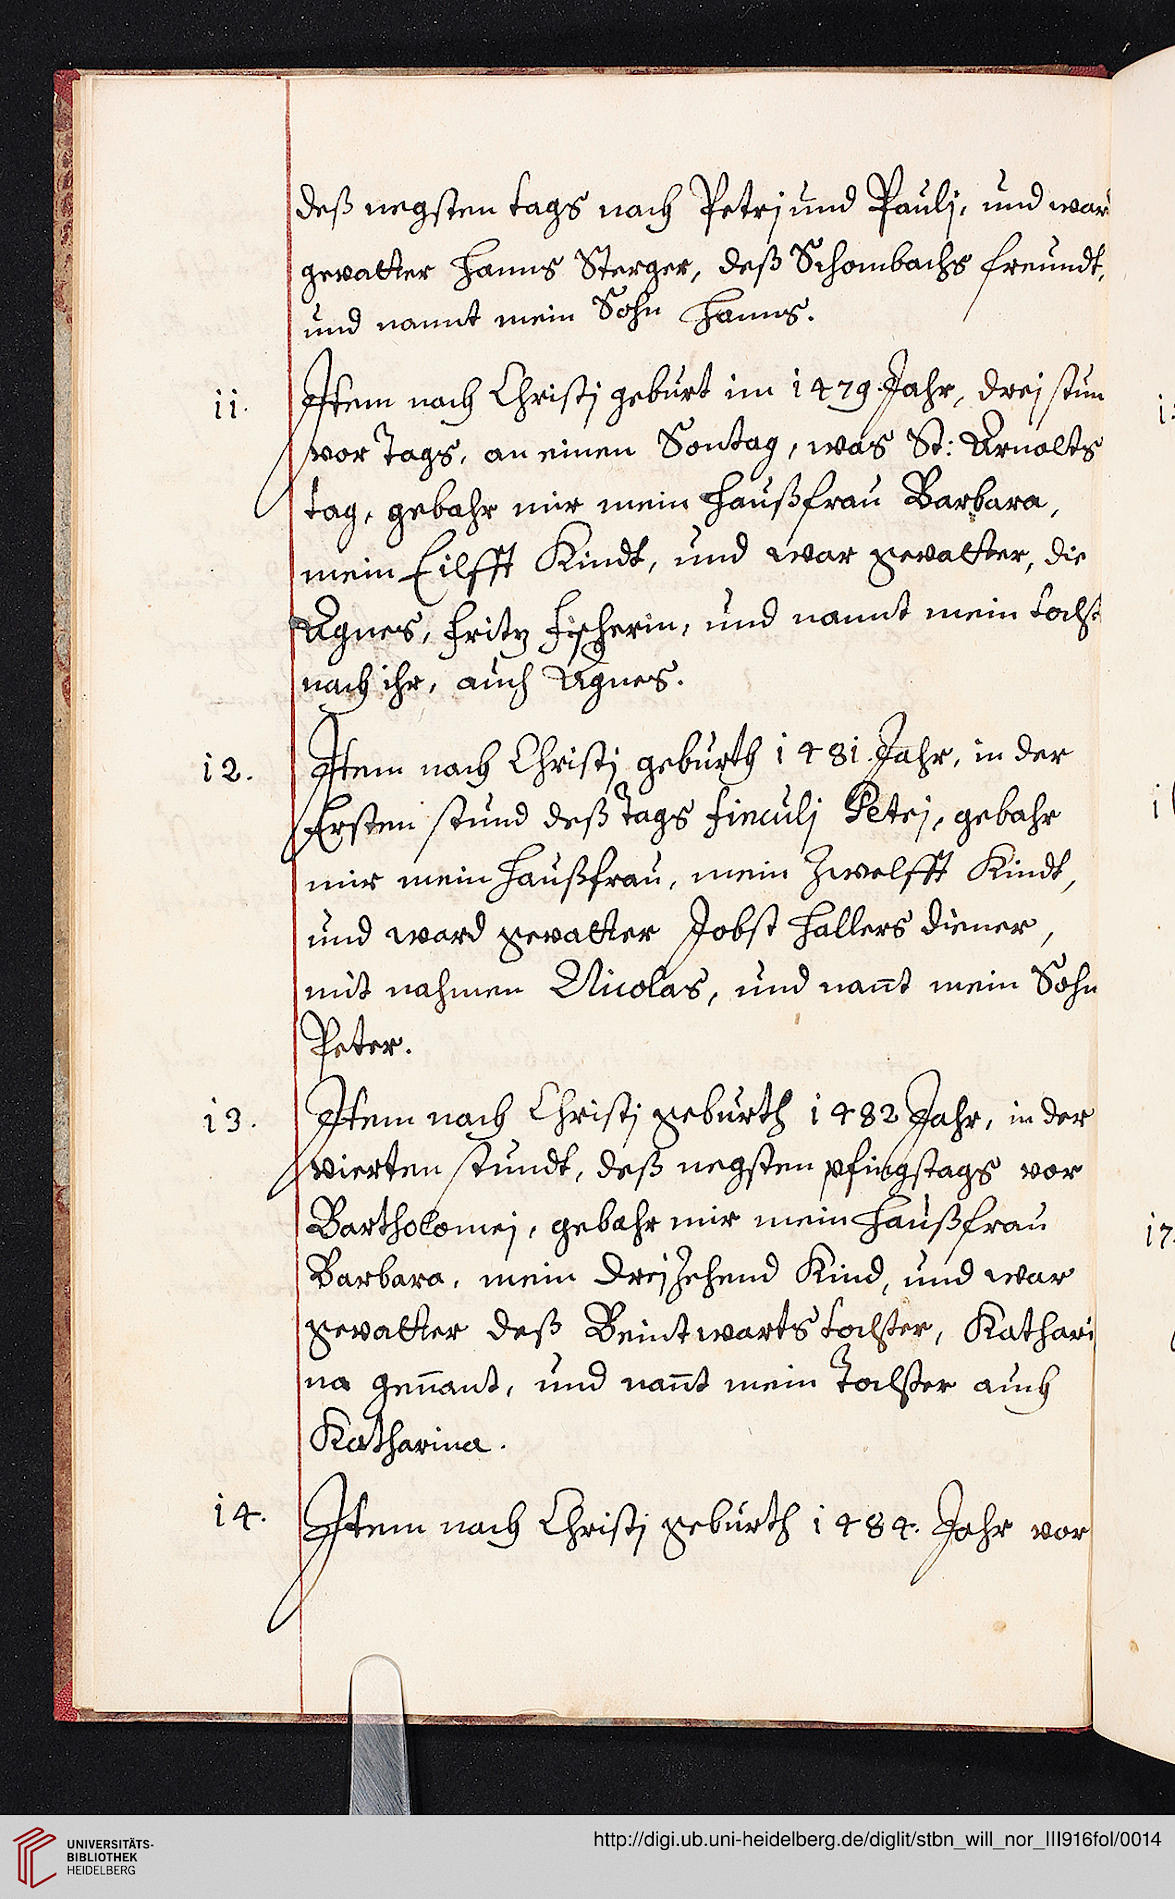 deß negsten tags nach Petrj und Paulj, und war
gevatter Hanns Sterger, deß Schombachs freundt,
und nannt mein Sohn Hanns.
ii. Item nach Christj geburt im 1479. Jahr, drej stun
vor Tags, an einen Sontag, was St: Arnolts
tag, gebahr mir mein Haußfrau Barbara,
mein Eilfft Kindt, und war gevatter, die
Agnes, Fritz Fischerin, und nannt mein tocht
nach ihr, auch Agnes.
i2. Item nach Christj geburth i48i. Jahr, in der
Ersten stund deß Tags finculj Petrj, gebahr
mir mein Haußfrau, mein Zwelfft Kindt,
und ward gevatter Jobst Hallers diener,
mit nahmen Nicolas, und nan̄t mein Sohn
Peter.
i3. Item nach Christj geburth i482 Jahr, in der
vierten stundt, deß negsten pfingstags vor
Bartholomej, gebahr mir mein Haußfrau
Barbara, mein Drejzehend Kind, und war
gevatter deß Beintwarts tochter, Kathari
na gen̄ant, und nan̄t mein Tochter auch
Katharina.
i4. Item nach Christj geburth i484. Jahr vor
UNIVERSITÄTS-
BIBLIOTHEK
HEIDELBERG
http://digi.ub.uni-heidelberg.de/diglit/stbn_will_nor_III916fol/0014
i7.